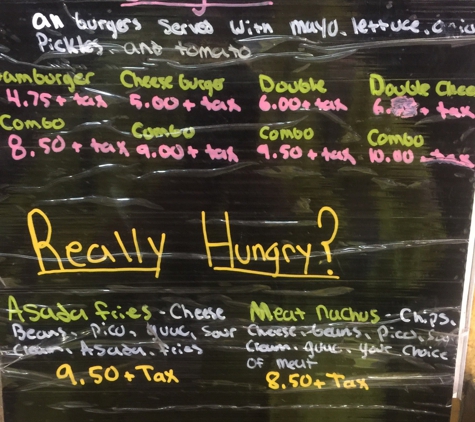 all burgers served with mayo, lettuce, onio
Pickles and tomato
amburger Cheese burger Double Double Chee
4.75 + tax 5.00 + tax 6.00 + tax 6. + tax
Combo Combo Combo Combo
8.50 + tax 9.00 + tax 9.50 + tax 10.00 + tax
Really Hungry?
Asada fries - Cheese
Beans, Pico, guac, sour
Cream, Asada, fries
9.50 + Tax
Meat nachos - Chips,
Cheese, beans, Pico, So
Cream, guac, your choice
of meat
8.50 + Tax